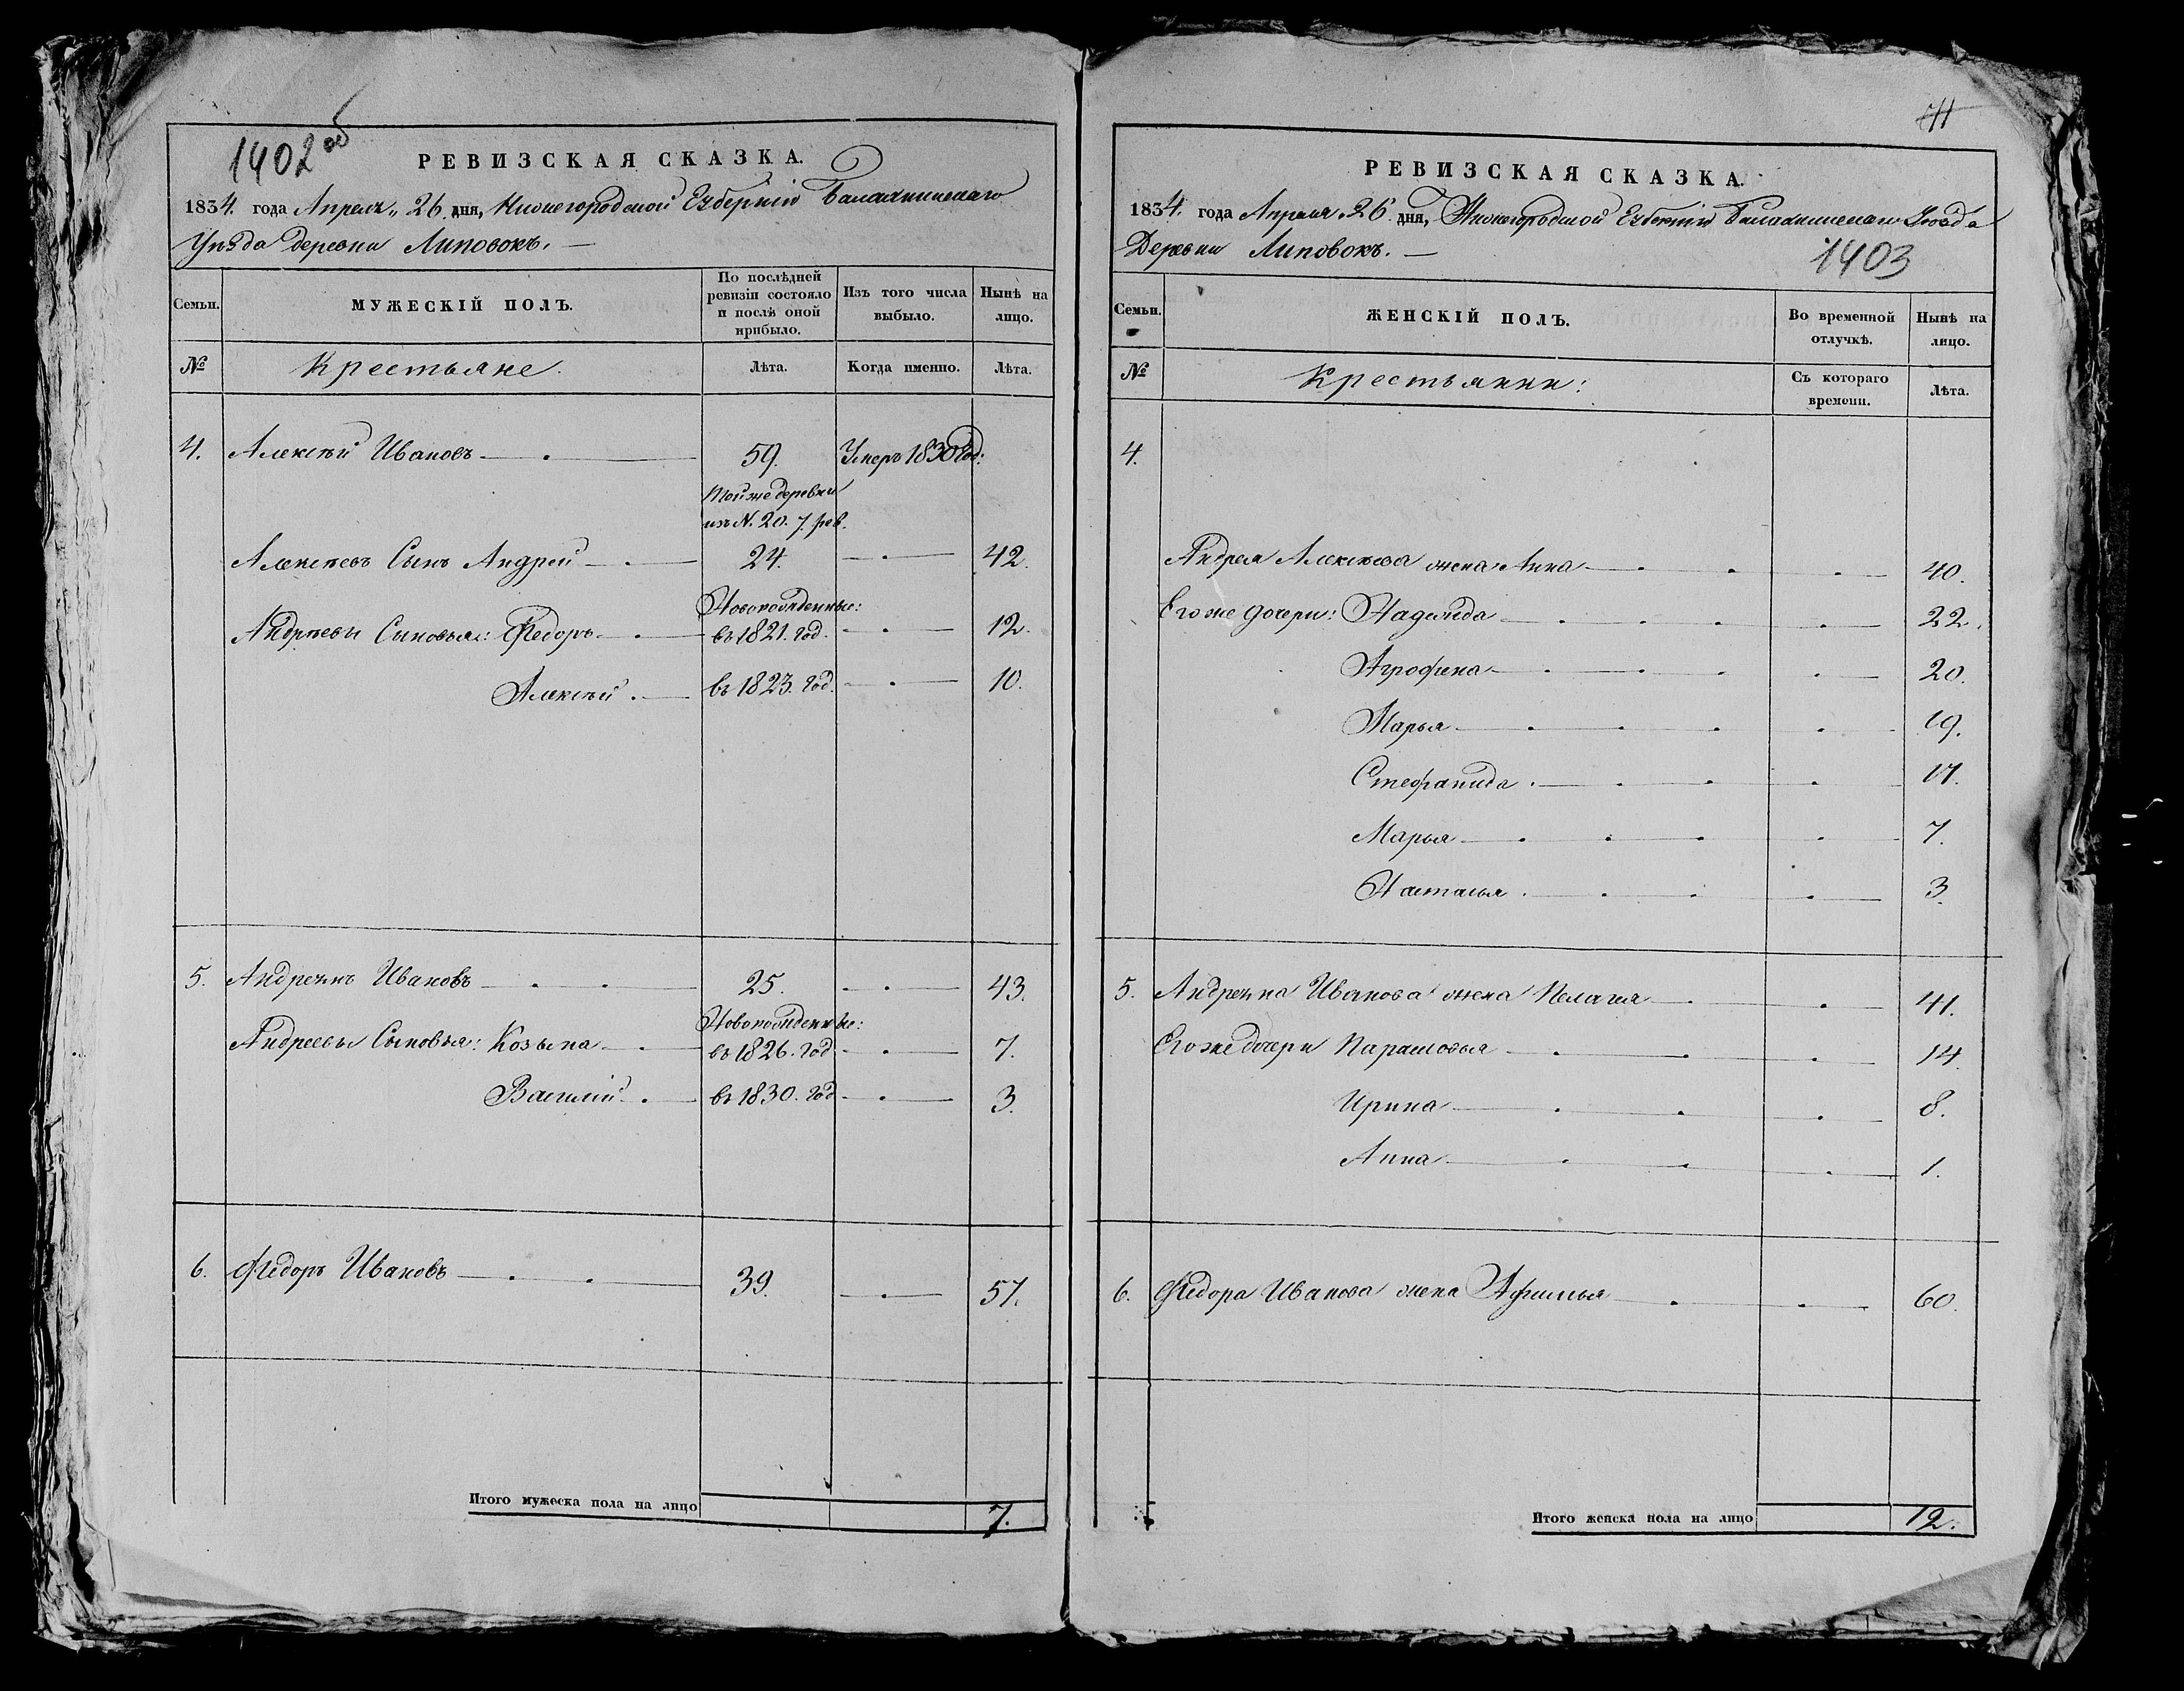 1402 об
РЕВИЗСКАЯ СКАЗКА.
1834. года Апреля 26. дня, Нижегородской Губернии Балахнинскаго
Уѣзда деревни Липовокъ. —
Семьи.
МУЖЕСКІЙ ПОЛЪ.
По послѣдней ревизіи состояло и послѣ оной прибыло.
Изъ того числа выбыло.
Нынѣ на лицо.
№
Крестьяне.
Лѣта.
Когда именно.
Лѣта.
4. Алексѣй Ивановъ — 59. Умеръ 1830 год:
Той же деревни
изъ N. 20. 7. рев.
Алексѣевъ Сынъ Андрей — 24. — 42.
Новорожденные:
Андрѣевы Сыновья: Федоръ — въ 1821. год. — 12.
Алексѣй — въ 1823. год. — 10.
5. Андреянъ Ивановъ — 25. — 43.
Новорожденные:
Андреевы Сыновья: Козьма — въ 1826. год — 7.
Василий — въ 1830. год — 3.
6. Федоръ Ивановъ — 39. — 57.
Итого мужеска пола на лицо 7.
411
РЕВИЗСКАЯ СКАЗКА.
1834. года Апреля 26. дня, Нижегородской Губернии Балахнинскаго Уѣзда
Деревни Липовокъ. —
1403
Семьи.
ЖЕНСКІЙ ПОЛЪ.
Во временной отлучкѣ.
Нынѣ на лицо.
№
Крестьянки:
Съ котораго времени.
Лѣта.
4.
Андрея Алексѣева жена Анна — 40.
Его же дочери: Надежда — 22.
Агрофена — 20.
Марья — 19.
Стефанида — 17.
Марья — 7.
Настасья — 3.
5. Андреяна Иванова жена Пелагея — 41.
Его же дочери Парасковья — 14.
Ирина — 8.
Анна — 1.
6. Федора Иванова жена Афимья — 60.
Итого женска пола на лицо 12.